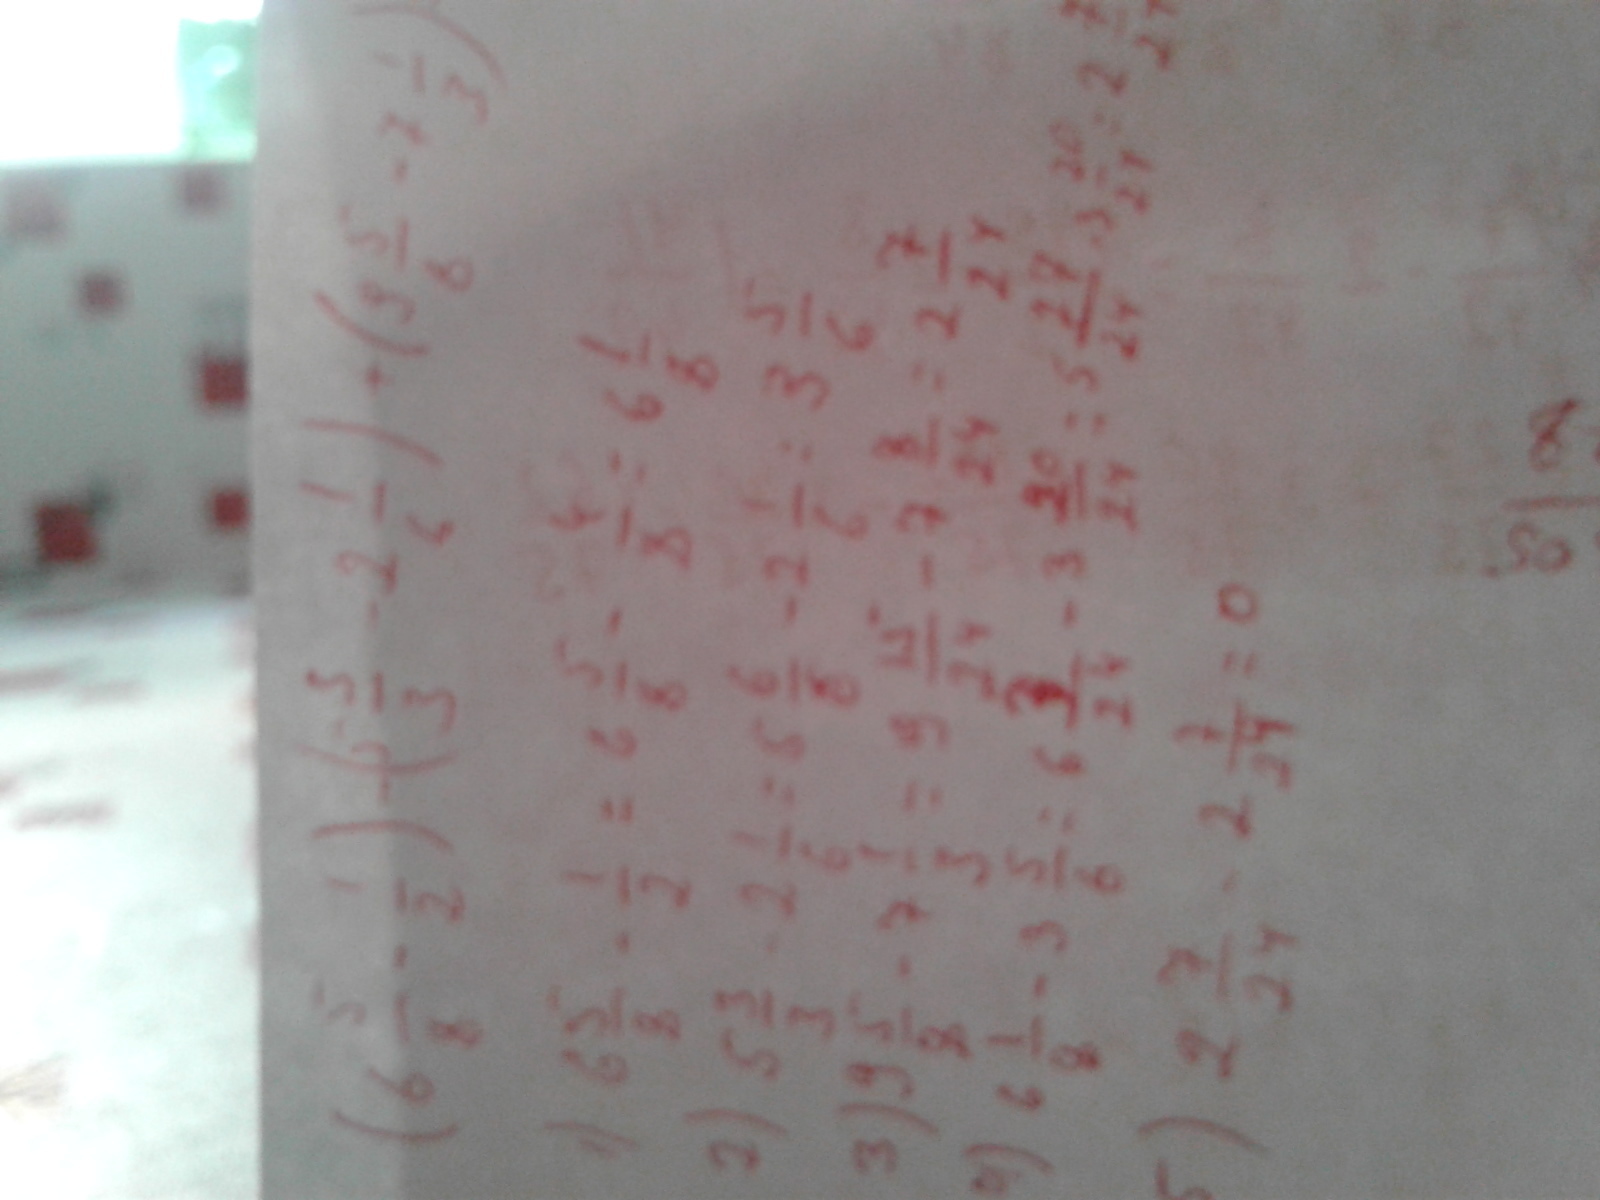 (6 5/8 - 1/2) - (5 3/3 - 2 1/6) + (9 5/8 - 7 1/3)
1) 6 5/8 - 1/2 = 6 5/8 - 4/8 = 6 1/8
2) 5 3/3 - 2 1/6 = 5 6/6 - 2 1/6 = 3 5/6
3) 9 5/8 - 7 1/3 = 9 15/24 - 7 8/24 = 2 7/24
4) 6 1/8 - 3 5/6 = 6 3/24 - 3 20/24 = 5 27/24 - 3 20/24 = 2 7/24
5) 2 7/24 - 2 7/24 = 0